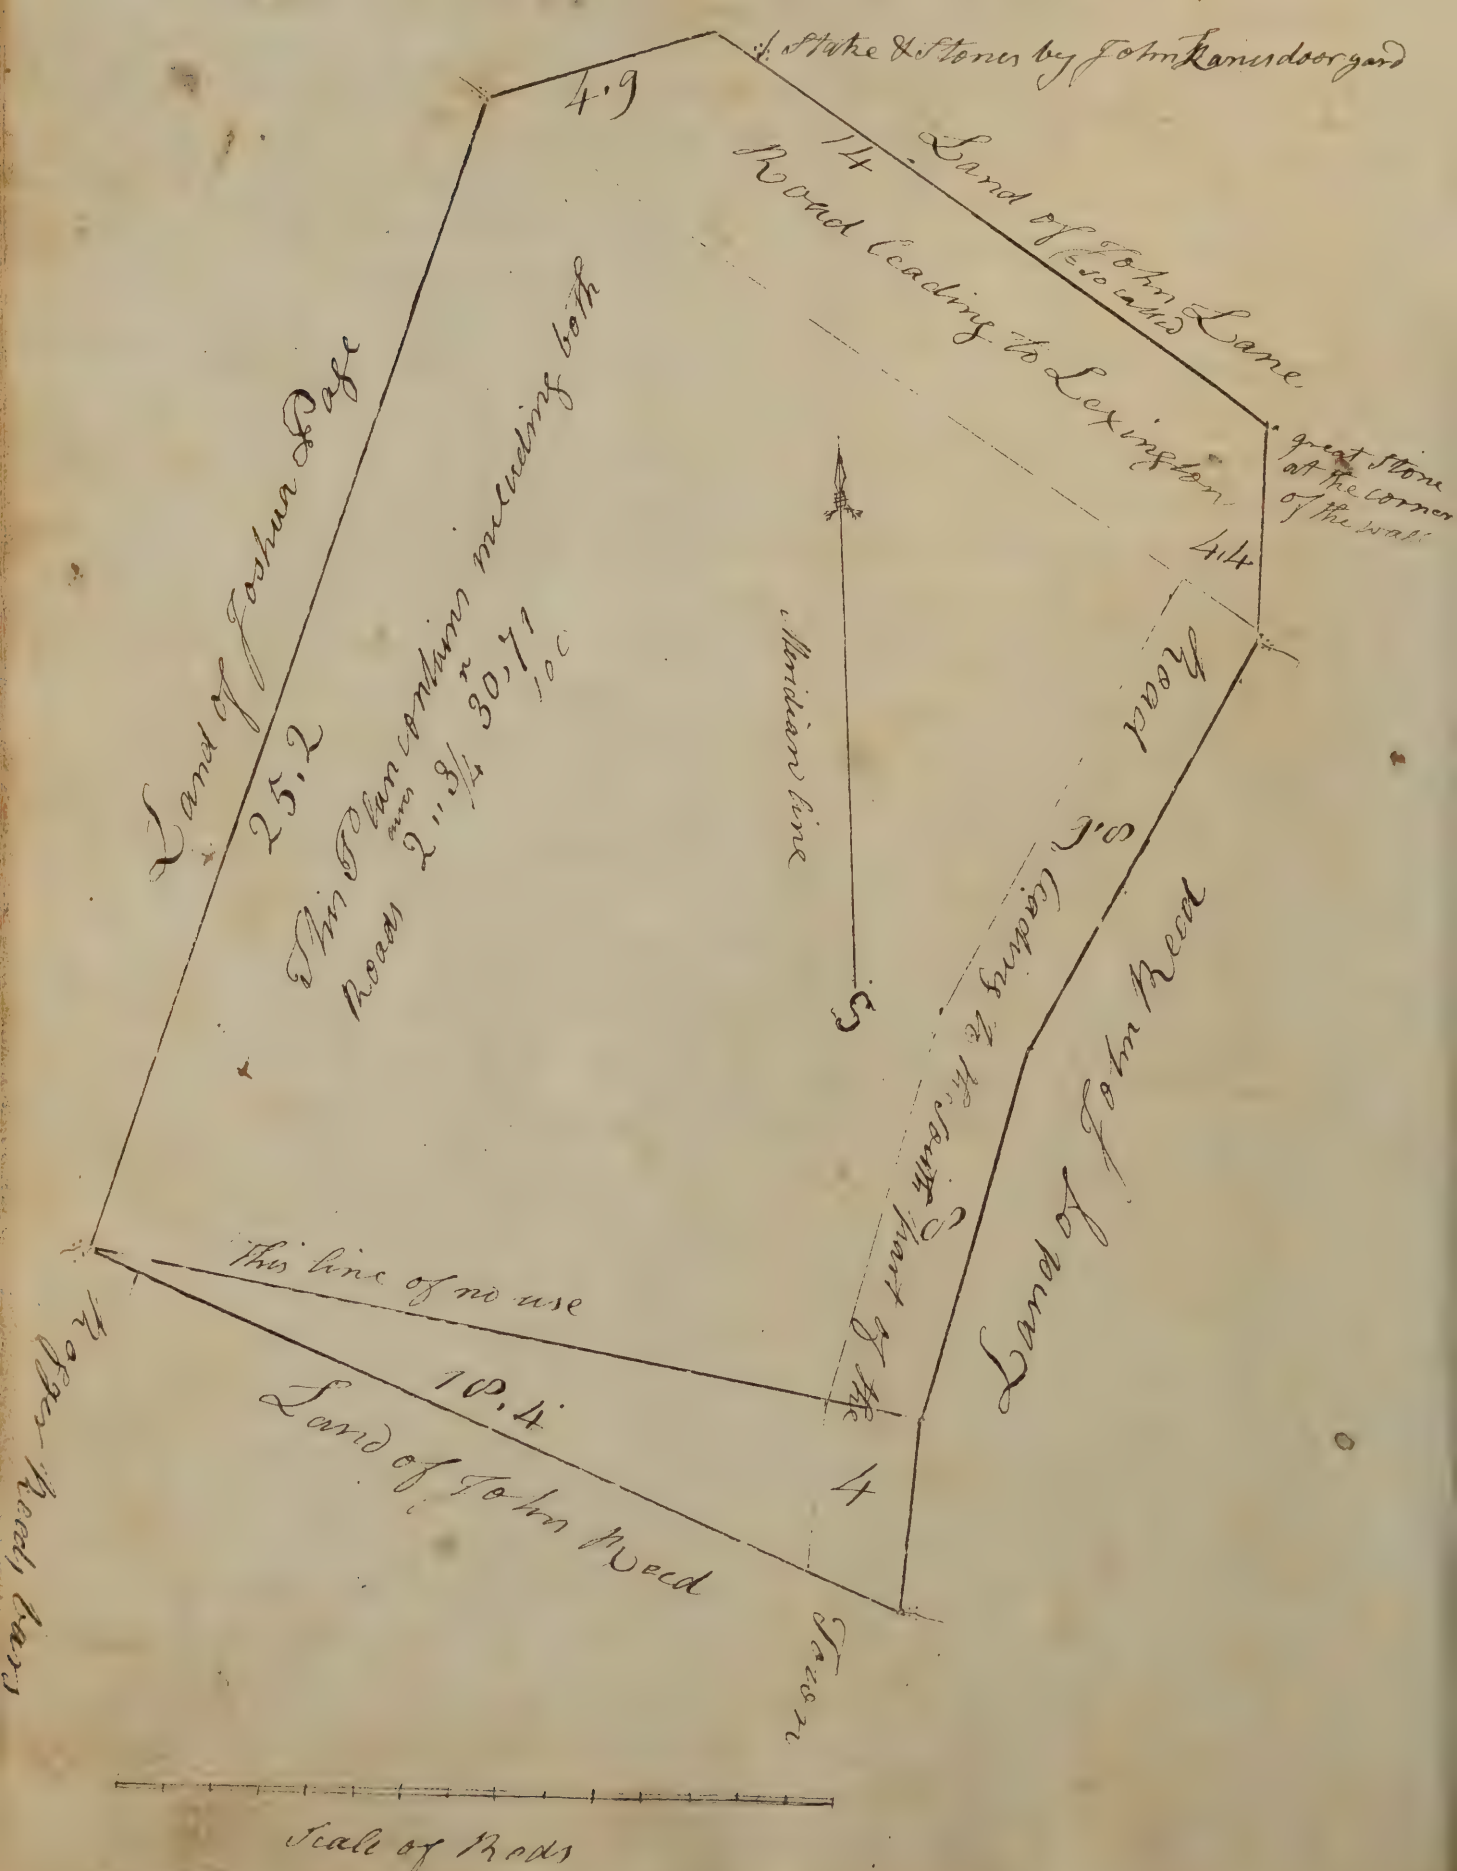 4.9
Stake & Stones by John Lanes door yard
14
Land of John Lane
so called
Road leading to Lexington
great Stone
at the corner
of the wall
4.4
Land of Joshua Page
25.2
This Plan contains including both
Roads 2 " 3/4 30,71
Meridian line
S
Road leading to the South part of the
Town
8
Land of John Reed
This line of no use
18.4
Land of John Reed
4
Reeds bars
Scale of Rods